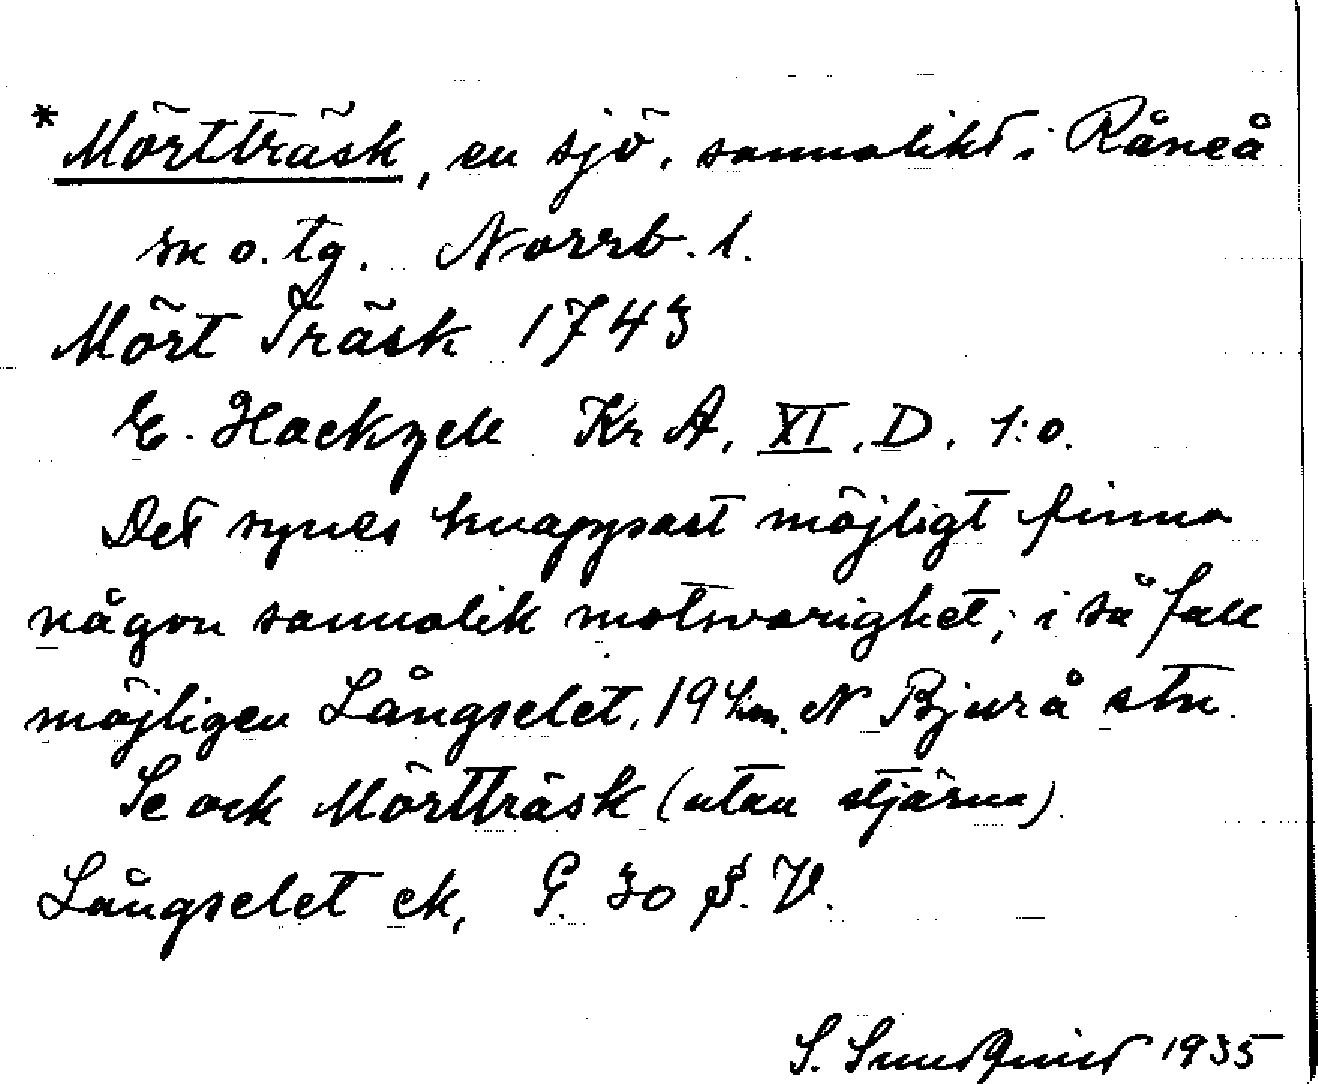 *Mörtträsk, en sjö, sannolikt i Råneå
sn o. tg. Norrb. l.
Mört Träsk 1743
E. Hackzell Kr A, XI, D, 1:o.
Det synes knappast möjligt finna
någon sannolik motsvarighet; i så fall
möjligen Långselet, 19 km. N Bjurå stn.
Se ock Mörtträsk (utan stjärna).
Långselet ek, G. 30 S. V.
S. Sundquist 1935